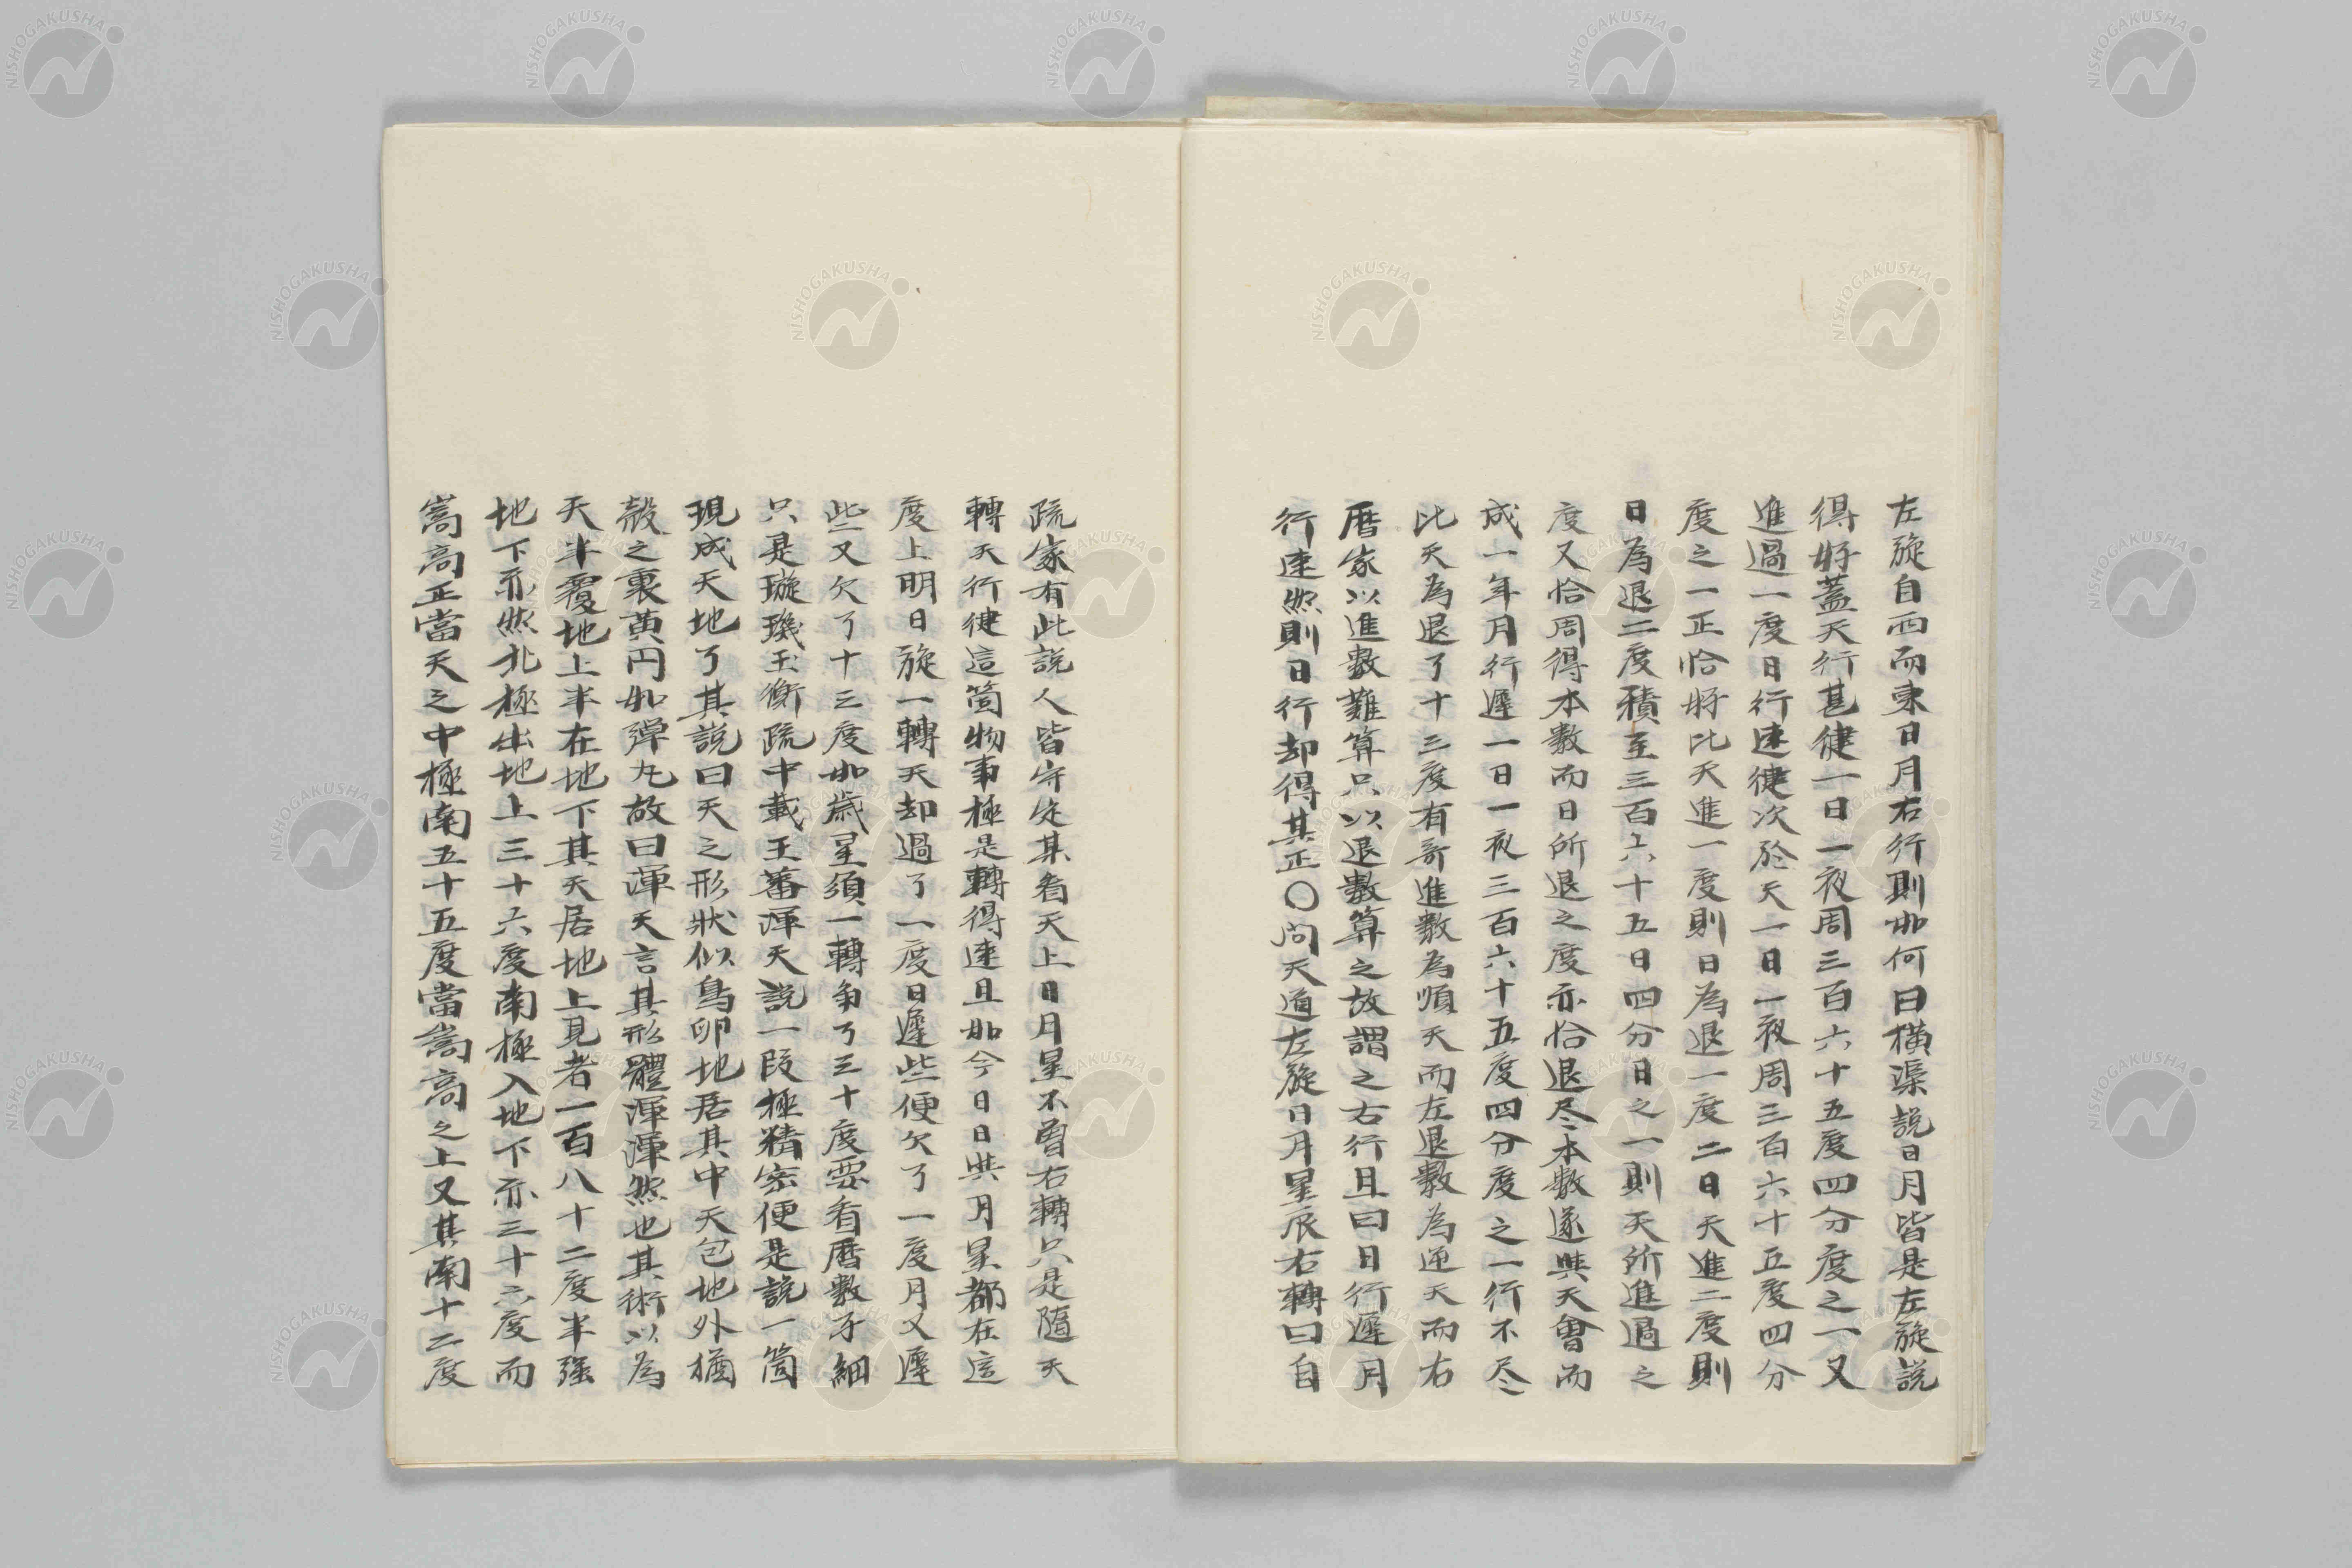 左旋自西而東日月右行則如何曰横渠說日月皆是左旋說
得好蓋天行甚健一日一夜周三百六十五度四分度之一又
進過一度日行速健次於天一日一夜周三百六十五度四分
度之一正恰好比天進一度則日為退一度二日天進二度則
日為退二度積至三百六十五日四分日之一則天所進過之
度又恰周得本數而日所退之度亦恰退尽本數遂與天會而
成一年月行遲一日一夜三百六十五度四分度之一行不尽
比天為退了十三度有奇進數為順天而左退數為逆天而右
曆家以進數難算只以退數算之故謂之右行且曰日行遲月
行速然則日行却得其正〇問天道左旋日月星辰右轉曰自
疏家有此說人皆守定某看天上日月星不曾右轉只是隨天
轉天行健這箇物事極是轉得速且如今日日與月星都在這
度上明日旋一轉天却過了一度日遲些便欠了一度月又遲
些又欠了十三度如歲星須一轉争了三十度要看曆數子細
只是璇璣玉衡疏中載王蕃渾天說一段極精密便是說一箇
現成天地了其說曰天之形狀似鳥卵地居其中天包地外猶
殻之裹黄円如彈丸故曰渾天言其形體渾渾然也其術以為
天半覆地上半在地下其天居地上見者一百八十二度半强
地下亦然北極出地上三十六度南極入地下亦三十六度而
嵩高正當天之中極南五十五度當嵩高之上又其南十二度
NISHOGAKUSHA